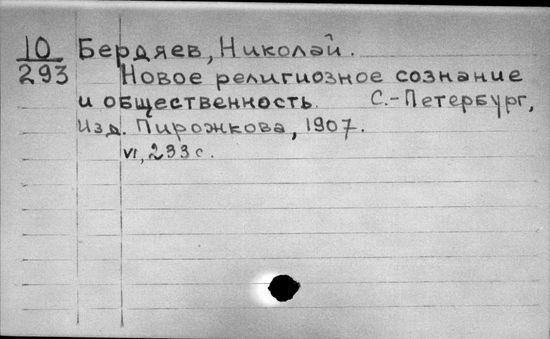 10 Бердяев, Николай.
293 Новое религиозное сознание
и общественность. С.-Петербург,
Изд. Пирожкова, 1907.
VI, 233 с.